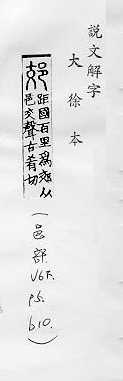 説文解字
大徐本
郊
距國百里爲郊从
邑交聲古肴切
(邑部 V6下. P5. b10.)